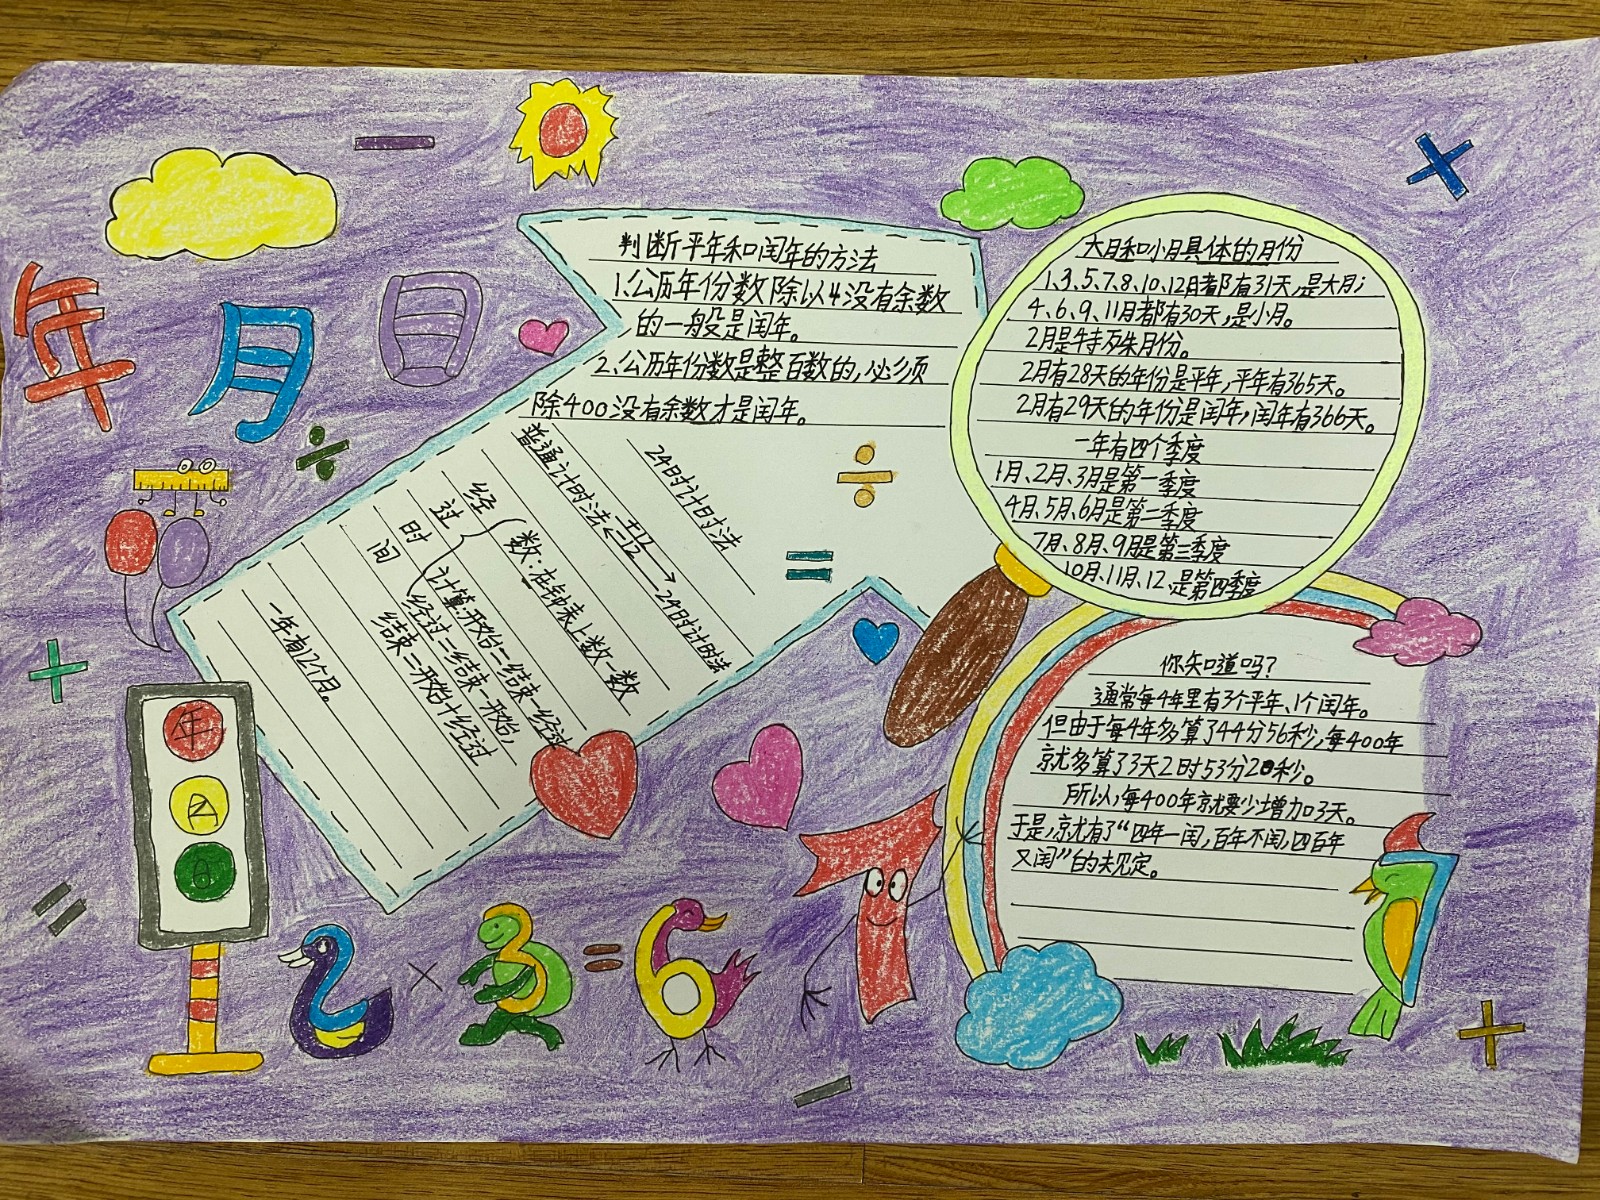 年 月 日
判断平年和闰年的方法
1、公历年份数除以4没有余数
的一般是闰年。
2、公历年份数是整百数的,必须
除400没有余数才是闰年。
24时计时法
普通计时法 +12 -12 24时计时法
经过时间
数:在钟表上数一数
计算:开始=结束-经过
经过=结束-开始,
结束=开始+经过
一年有12个月。
大月和小月具体的月份
1、3、5、7、8、10、12月都有31天,是大月;
4、6、9、11月都有30天,是小月。
2月是特殊月份。
2月有28天的年份是平年,平年有365天。
2月有29天的年份是闰年,闰年有366天。
一年有四个季度
1月、2月、3月是第一季度
4月、5月、6月是第二季度
7月、8月、9月是第三季度
10月、11月、12.是第四季度
你知道吗?
通常每4年里有3个平年、1个闰年。
但由于每4年多算了44分56秒,每400年
就多算了3天2时53分20秒。
所以,每400年就要少增加3天。
于是,就有了“四年一闰,百年不闰,四百年
又闰”的规定。
年
月
日
2×3=6